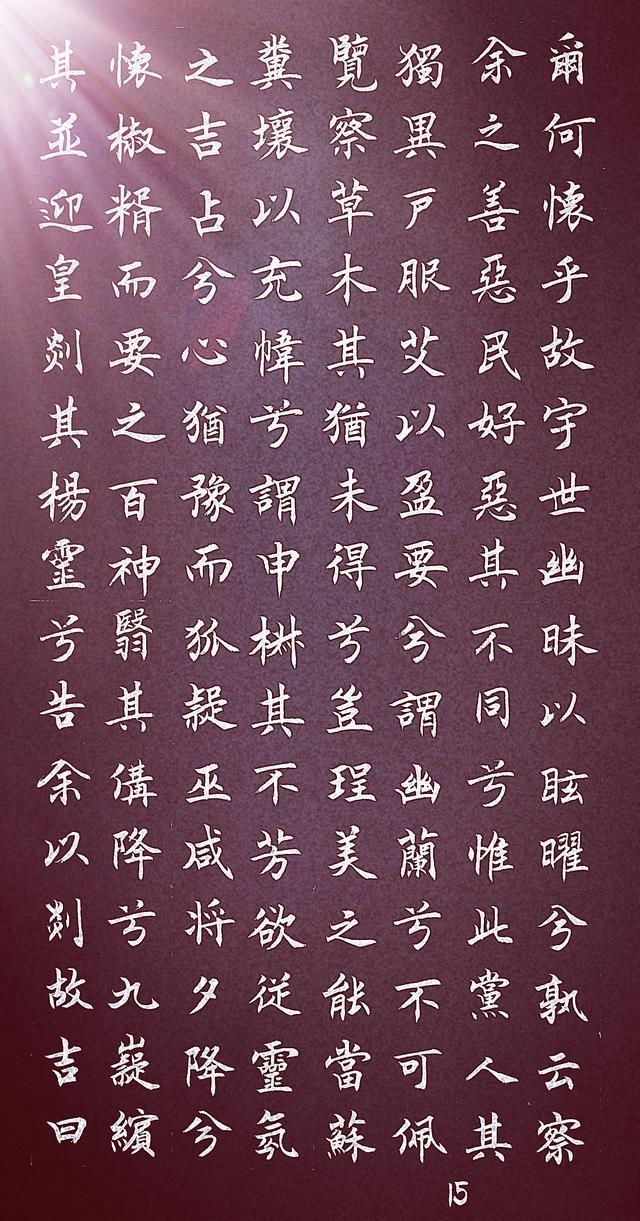 爾何懐乎故宇世幽昧以眩曜兮孰云察
余之善惡民好惡其不同兮惟此黨人其
獨異戸服艾以盈要兮謂幽蘭兮不可佩
覽察草木其猶未得兮豈珵美之能當蘇
糞壤以充幃兮謂申椒其不芳欲従靈氛
之吉占兮心猶豫而狐疑巫咸将夕降兮
懐椒糈而要之百神翳其備降兮九嶷繽
其並迎皇剡其楊靈兮告余以剡故吉曰
15